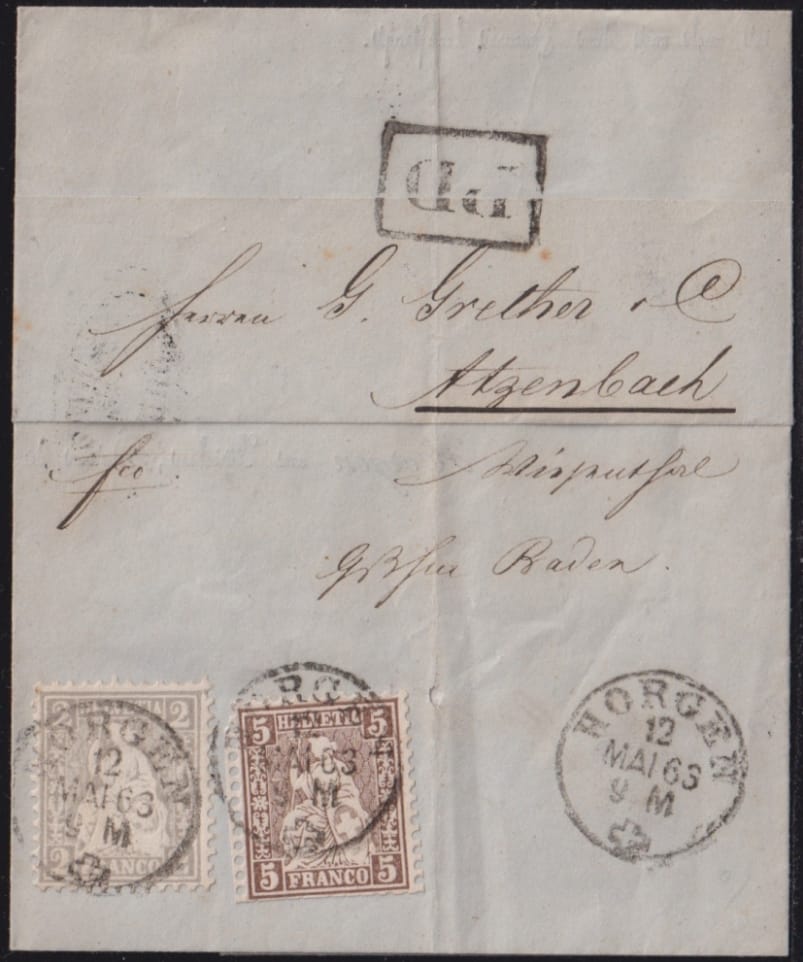 PD
Herren G. Grether & C
Atzenbach
fco
Wiesenthal
Baden.
2 HELVETIA 2
2 FRANCO
HORGEN
12
MAI 63
9 M
5 HELVETIA 5
5 FRANCO 5
HORGEN
12
MAI 63
9 M
HORGEN
12
MAI 63
9 M